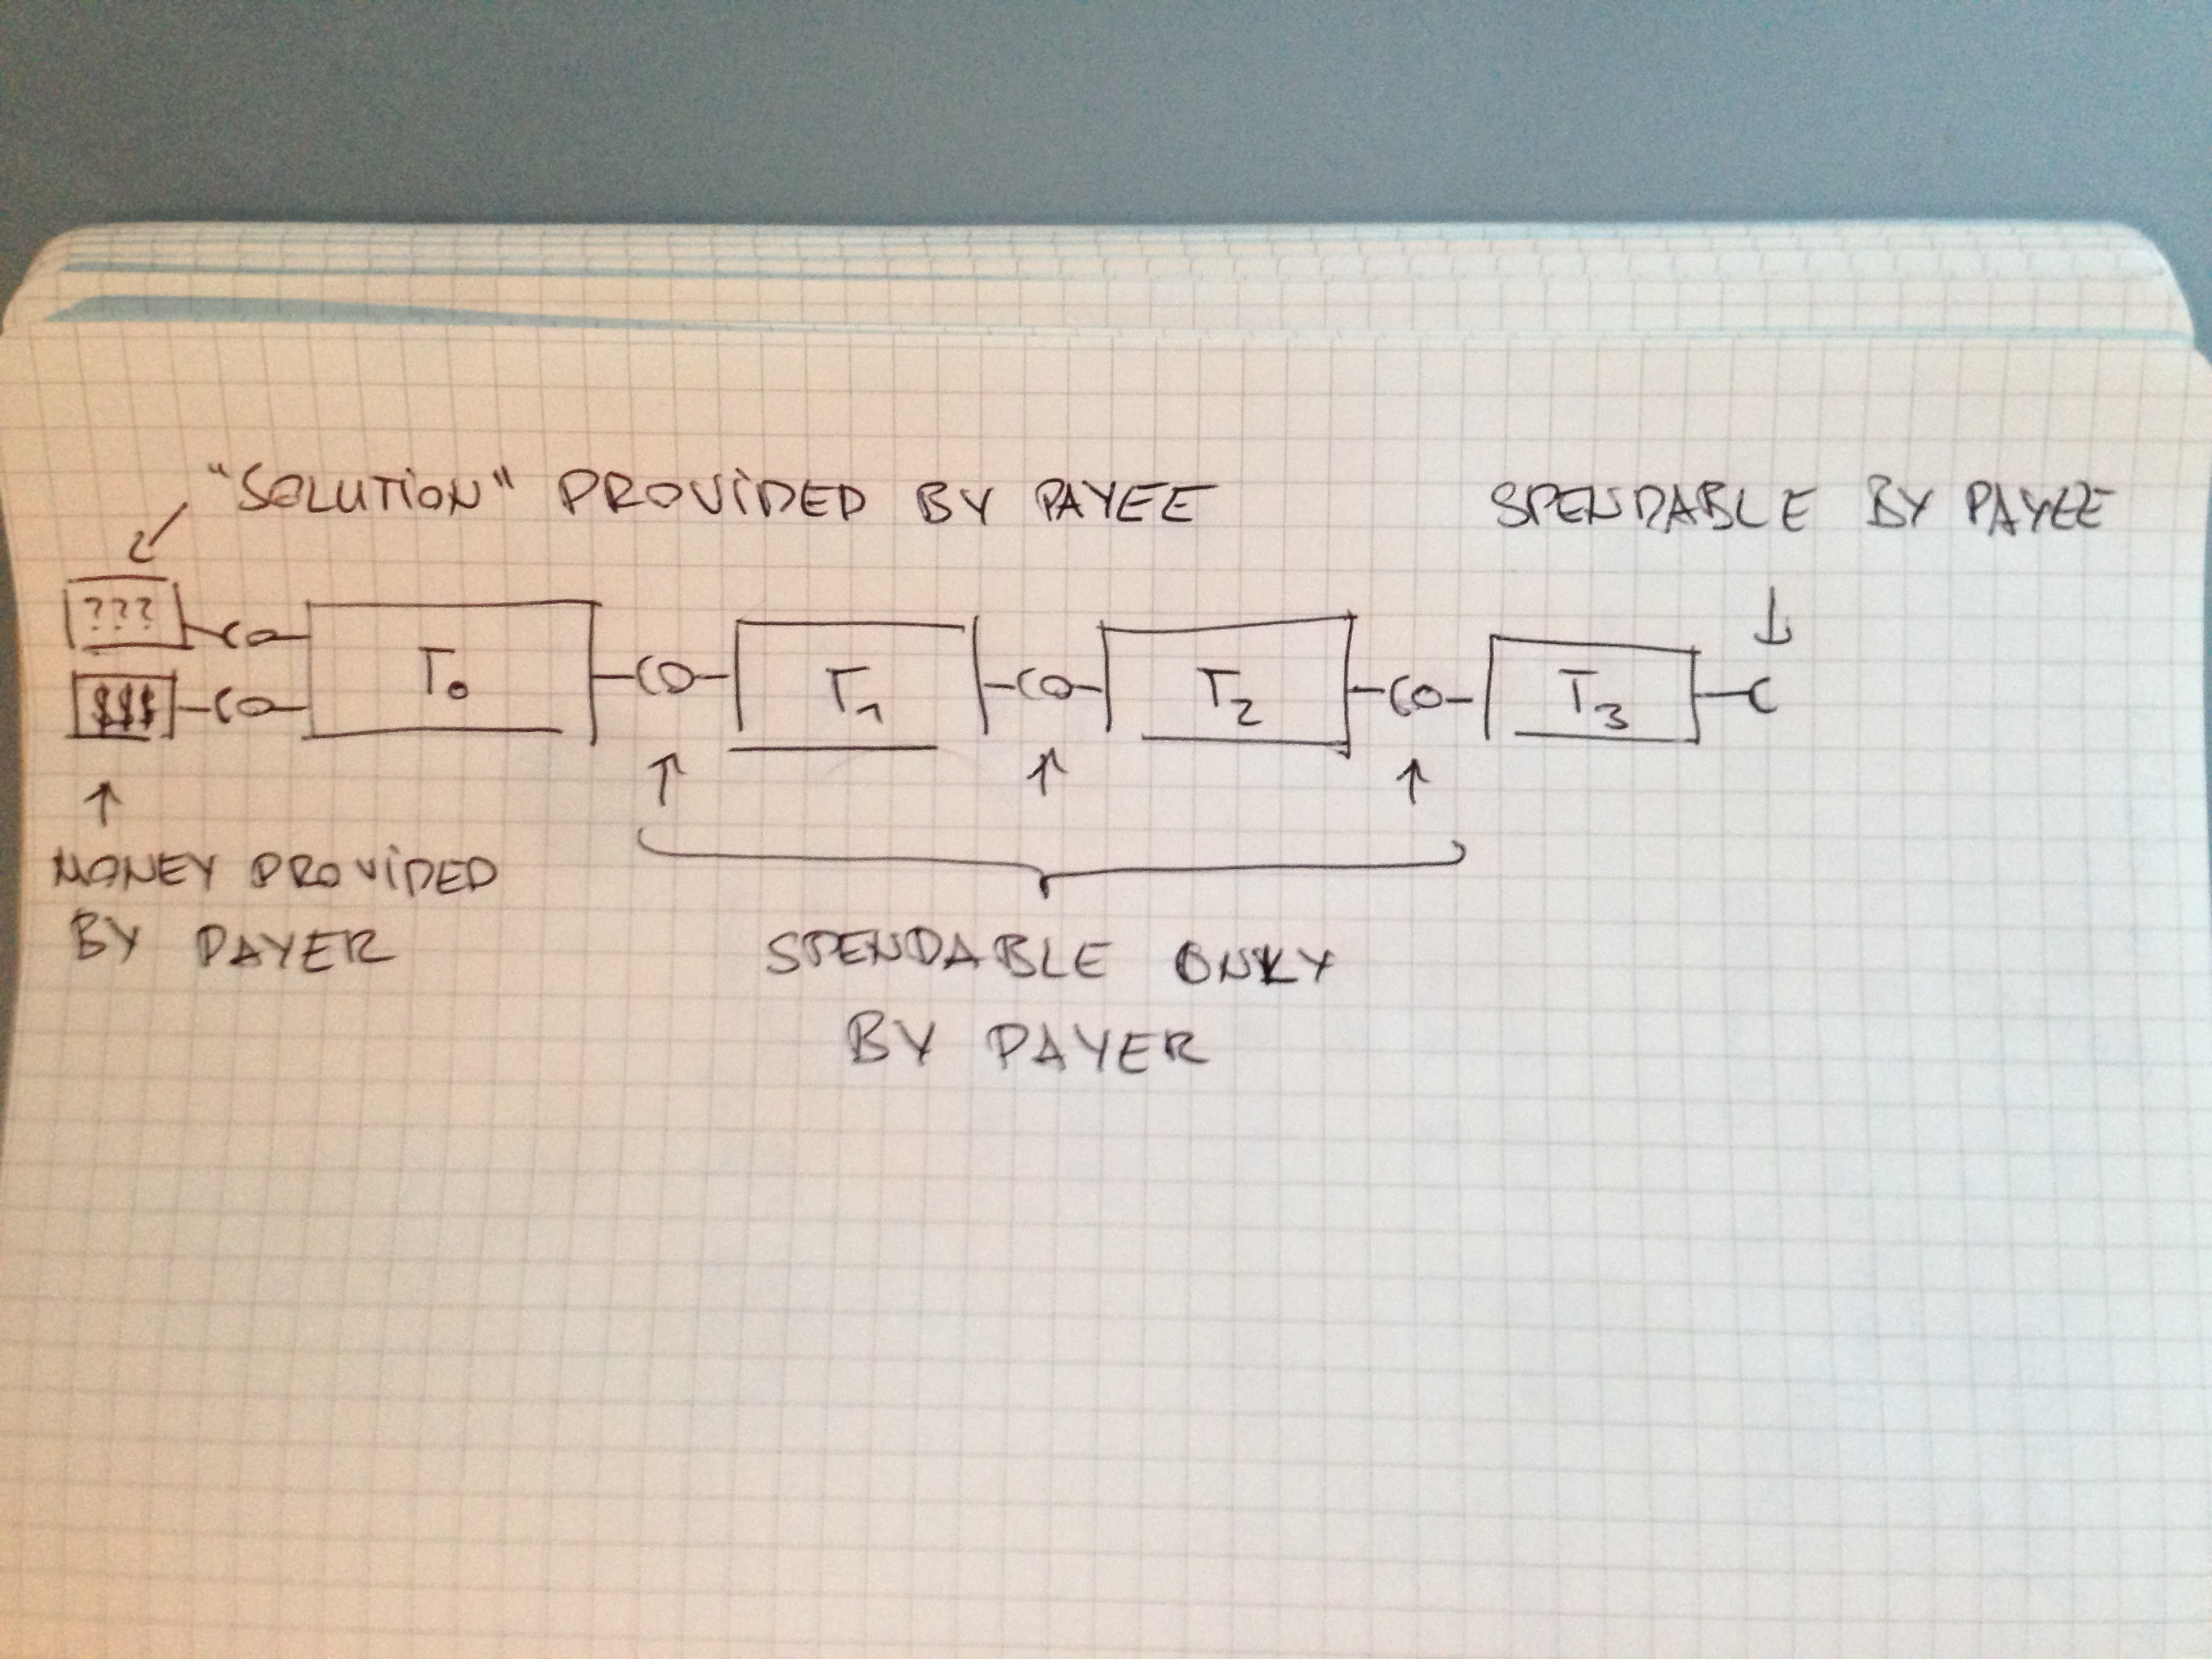 "SOLUTION" PROVIDED BY PAYEE
SPENDABLE BY PAYEE
???
$$$
T0
T1
T2
T3
MONEY PROVIDED
BY PAYER
SPENDABLE ONLY
BY PAYER